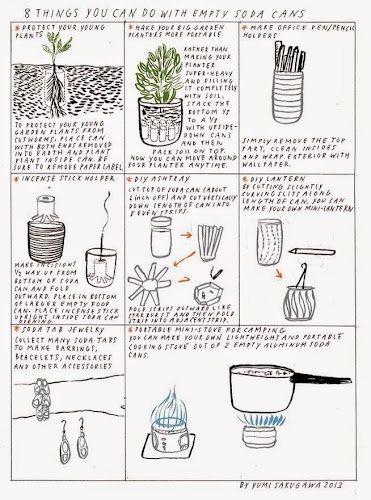 8 THINGS YOU CAN DO WITH EMPTY SODA CANS
* PROTECT YOUR YOUNG
PLANTS
TO PROTECT YOUR YOUNG
GARDEN PLANTS FROM
CUTWORMS, PLACE CAN
WITH BOTH ENDS REMOVED
INTO EARTH AND PLANT
PLANT INSIDE CAN. BE
SURE TO REMOVE PAPER LABEL.
* MAKE YOUR BIG GARDEN
PLANTERS MORE PORTABLE
RATHER THAN
MAKING YOUR
PLANTER
SUPER-HEAVY
AND FILLING
IT COMPLETELY
WITH SOIL,
STACK THE
BOTTOM 1/3
TO A 1/2
WITH UPSIDE-
DOWN CANS
AND THEN
PACK SOIL ON TOP.
NOW YOU CAN MOVE AROUND
YOUR PLANTER ANYTIME.
* MAKE OFFICE PEN/PENCIL
HOLDERS
SIMPLY REMOVE THE TOP
PART, CLEAN INSIDES
AND WRAP EXTERIOR WITH
WALLPAPER.
* INCENSE STICK HOLDER
MAKE INCISIONS
1/2 WAY UP FROM
BOTTOM OF SODA
CAN AND FOLD
OUTWARD. PLACE IN BOTTOM
OF LARGER EMPTY FOOD
CAN. PLACE INCENSE STICK
UPRIGHT INSIDE SODA CAN
OPENING.
* DIY ASHTRAY
CUT TOP OF SODA CAN (ABOUT
1 INCH OFF) AND CUT VERTICALLY
DOWN LENGTH OF CAN INTO
8 EVEN STRIPS.
FOLD STRIPS OUTWARD LIKE
STARBURST AND THEN FOLD
STRIP INTO ADJACENT STRIP.
* DIY LANTERN
BY CUTTING SLIGHTLY
CURVING SLITS ALONG
LENGTH OF CAN, YOU CAN
MAKE YOUR OWN MINI-LANTERN
* SODA TAB JEWELRY
COLLECT MANY SODA TABS
TO MAKE EARRINGS,
BRACELETS, NECKLACES
AND OTHER ACCESSORIES
* PORTABLE MINI-STOVE FOR CAMPING
YOU CAN MAKE YOUR OWN LIGHTWEIGHT AND PORTABLE
COOKING STOVE OUT OF 2 EMPTY ALUMINUM SODA
CANS.
BY YUMI SAKUGAWA 2013